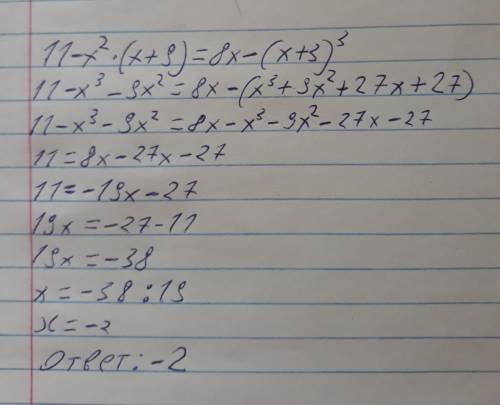 11-x²·(x+9)=8x-(x+3)³
11-x³-9x²=8x-(x³+9x²+27x+27)
11-x³-9x²=8x-x³-9x²-27x-27
11=8x-27x-27
11=-19x-27
19x=-27-11
19x=-38
x=-38:19
x=-2
Ответ:-2